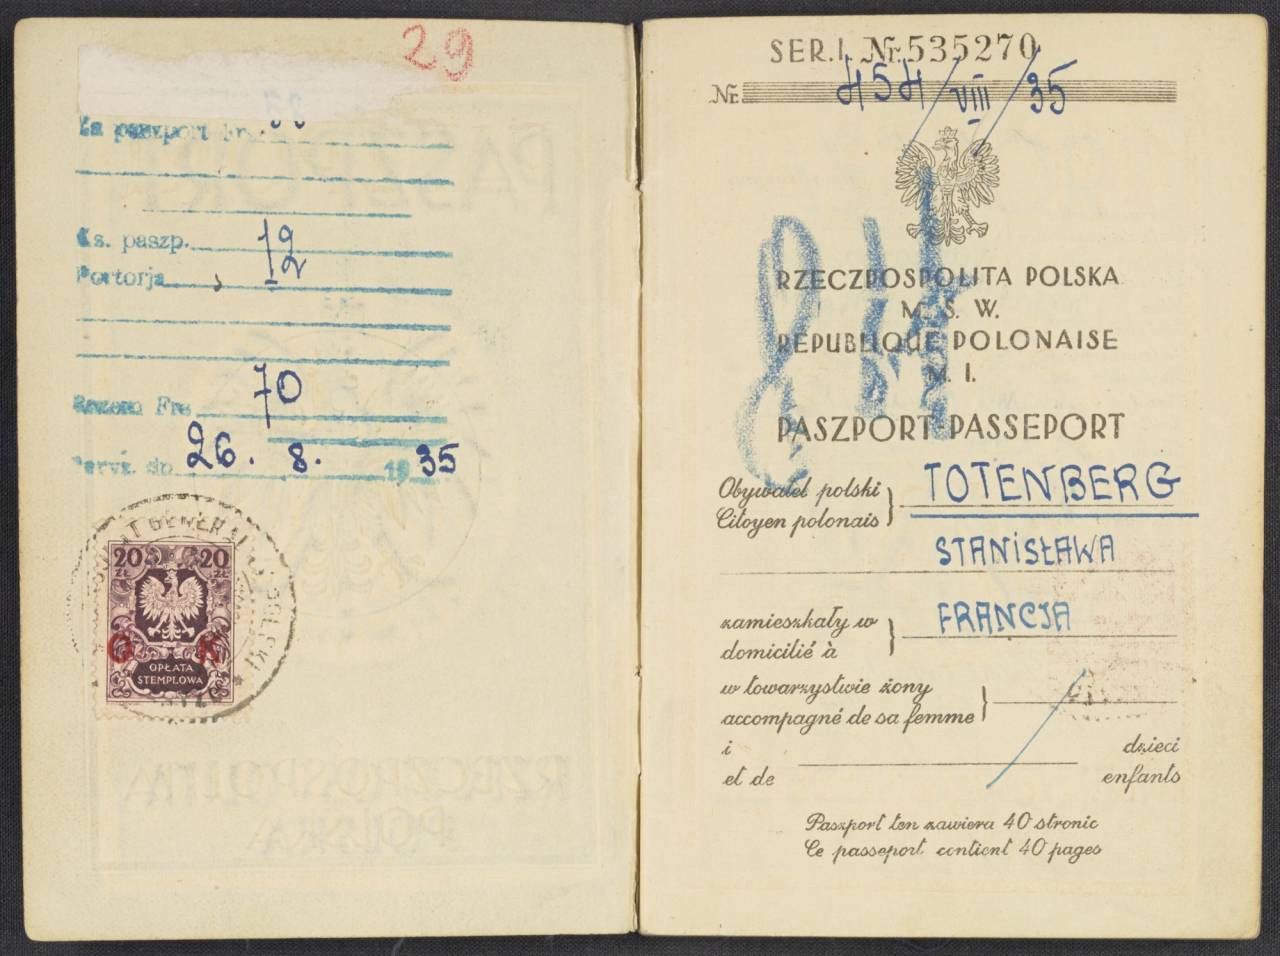 29
Za paszport Fr.
Ks. paszp. 12
Portorja
Razem Frs 70
Paryż. dn. 26. 8. 1935
20 ZŁ 20 ZŁ
O K
OPŁATA
STEMPLOWA
SER. I. Nr. 535270
Nr. 454/VIII/35
RZECZPOSPOLITA POLSKA
M. S. W.
REPUBLIQUE POLONAISE
M. I.
PASZPORT-PASSEPORT
Obywatel polski } TOTENBERG
Citoyen polonais
STANISŁAWA
zamieszkały w } FRANCJA
domicilié à
w towarzystwie żony }
accompagné de sa femme
i dzieci
et de enfants
Paszport ten zawiera 40 stronic
Ce passeport contient 40 pages